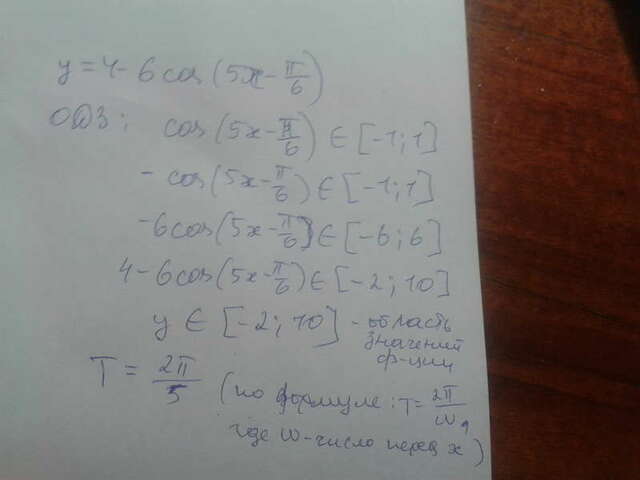 y = 4 - 6 cos (5x - π/6)
ОДЗ: cos (5x - π/6) ∈ [-1; 1]
- cos (5x - π/6) ∈ [-1; 1]
-6 cos (5x - π/6) ∈ [-6; 6]
4 - 6 cos (5x - π/6) ∈ [-2; 10]
y ∈ [-2; 10] - область
значений
ф-ции
T = 2π/5 (по формуле: T = 2π/w,
где w - число перед x)